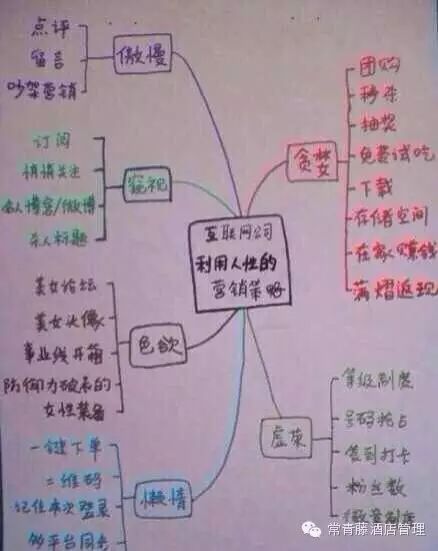 点评
留言
吵架营销
傲慢
订阅
悄悄关注
名人博客/微博
杀人标题
窥视
美女论坛
美女头像
事业线开箱
防御力破表的
女性装备
色欲
一键下单
二维码
记住本次登录
多平台同步
懒惰
互联网公司
利用人性的
营销策略
贪婪
团购
秒杀
抽奖
免费试吃
下载
存储空间
在家赚钱
满熠返现
虚荣
等级制度
号码抢占
签到打卡
粉丝数
常青藤酒店管理